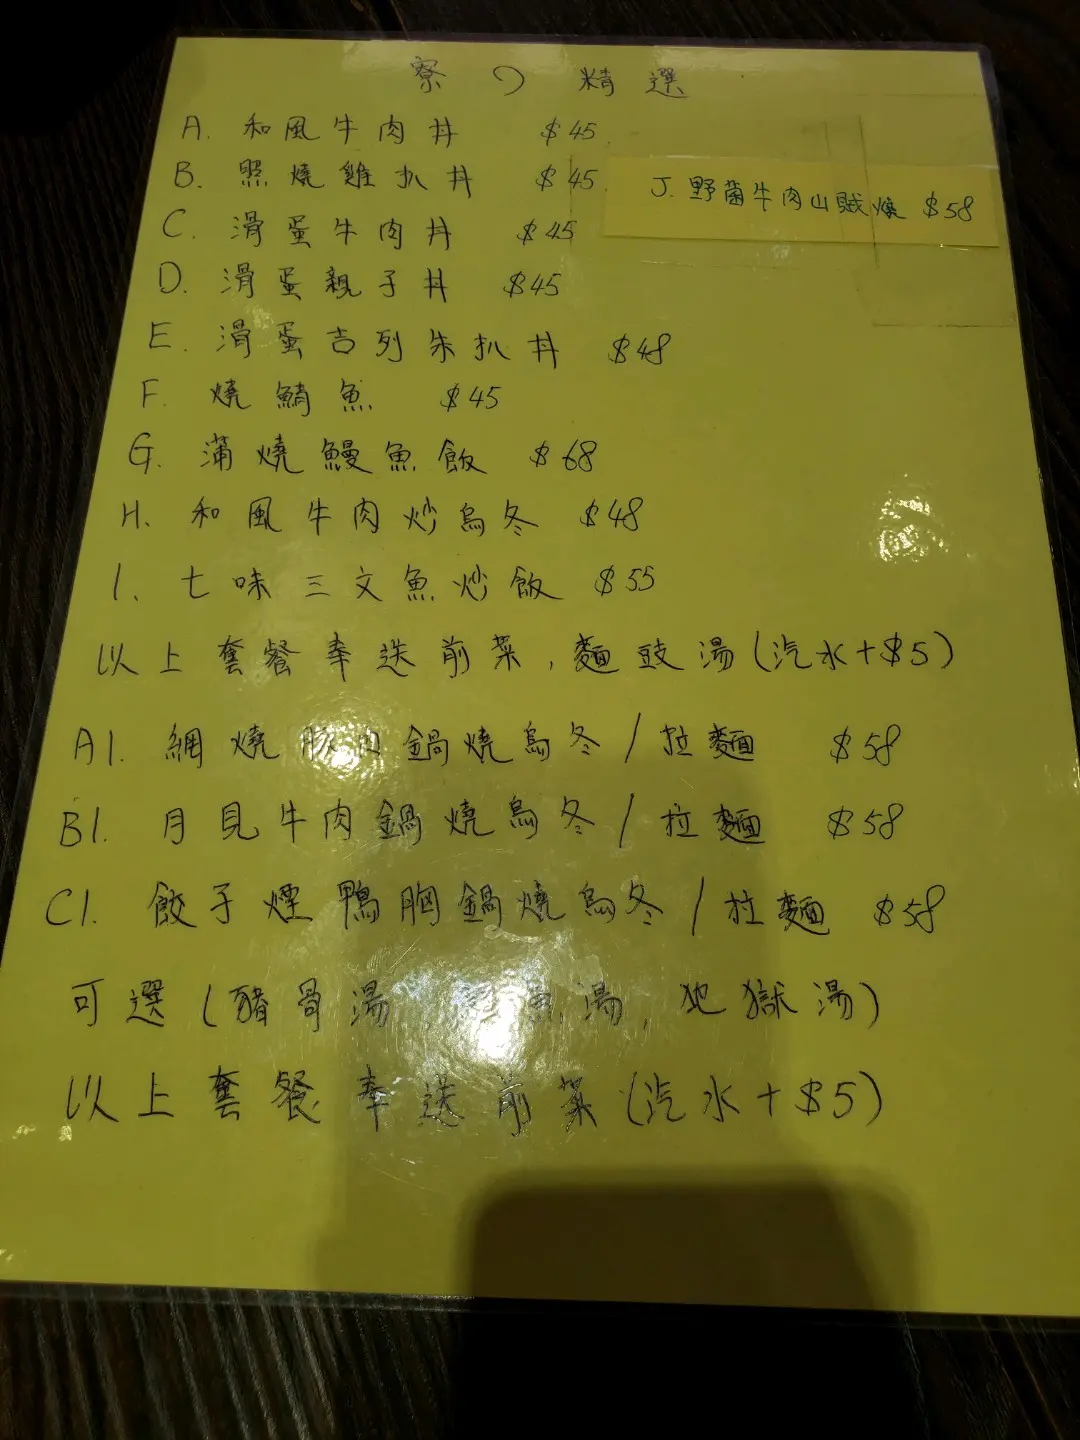 寮の精選
A. 和風牛肉丼 $45
B. 照燒雞扒丼 $45
J. 野菌牛肉山賊燒 $58
C. 滑蛋牛肉丼 $45
D. 滑蛋親子丼 $45
E. 滑蛋吉列朱扒丼 $48
F. 燒鯖魚 $45
G. 蒲燒鰻魚飯 $68
H. 和風牛肉炒烏冬 $48
I. 七味三文魚炒飯 $55
以上套餐奉送前菜,麵豉湯(汽水+$5)
A1. 網燒豚肉鍋燒烏冬/拉麵 $58
B1. 月見牛肉鍋燒烏冬/拉麵 $58
C1. 餃子煙鴨胸鍋燒烏冬/拉麵 $58
可選(豬骨湯, 魚湯, 地獄湯)
以上套餐奉送前菜(汽水+$5)